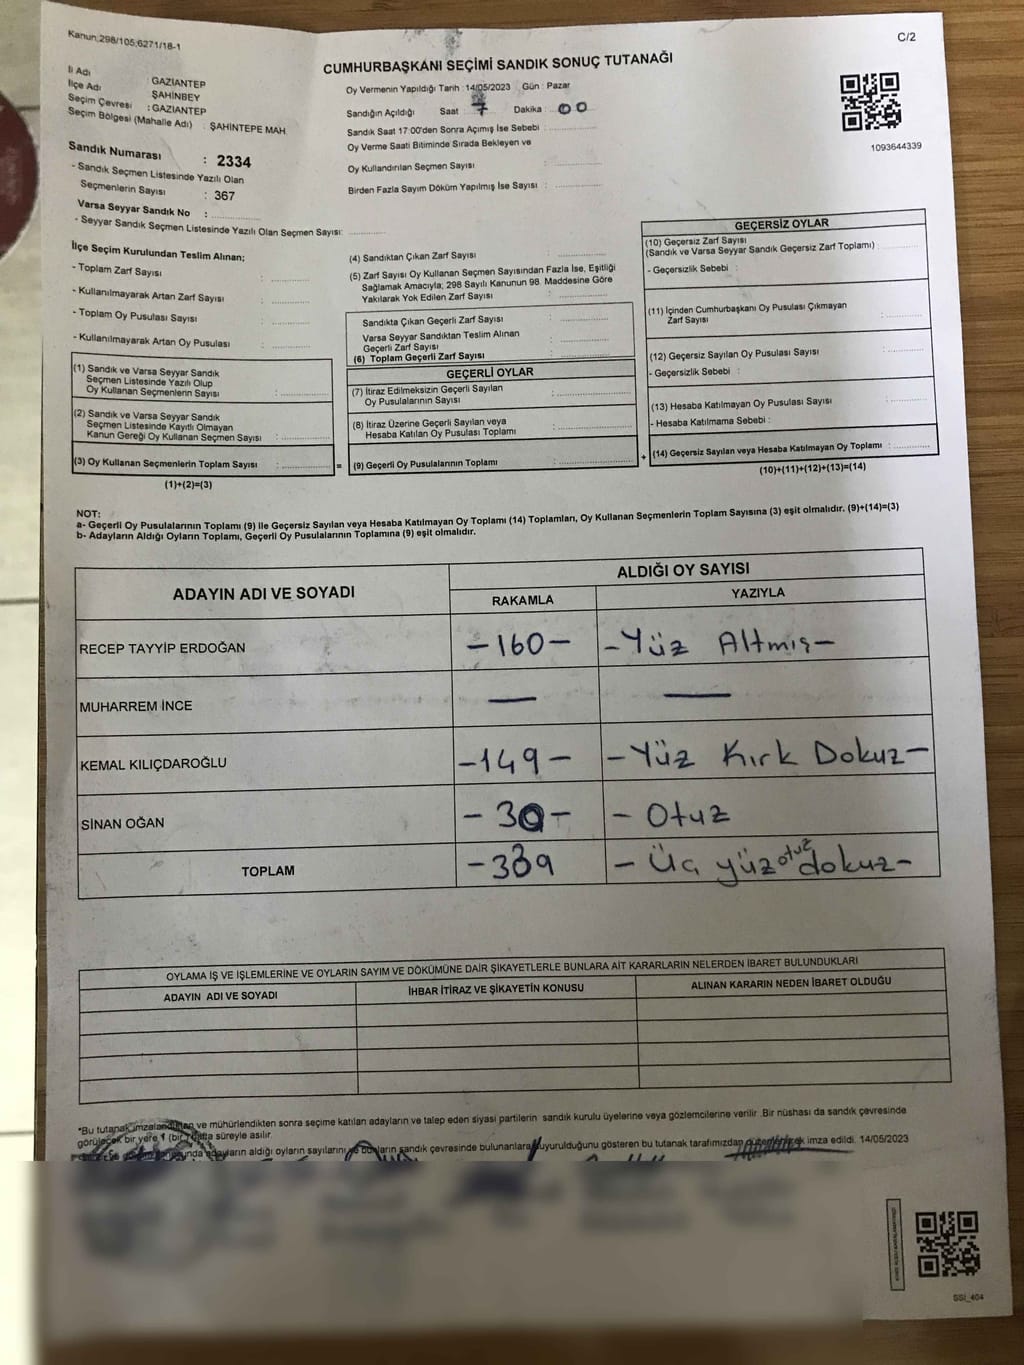 Kanun;298/105;6271/18-1
C/2
CUMHURBAŞKANI SEÇİMİ SANDIK SONUÇ TUTANAĞI
İl Adı : GAZİANTEP
İlçe Adı : ŞAHİNBEY
Seçim Çevresi : GAZİANTEP
Seçim Bölgesi (Mahalle Adı) : ŞAHİNTEPE MAH.
Sandık Numarası : 2334
- Sandık Seçmen Listesinde Yazılı Olan
Seçmenlerin Sayısı : 367
Varsa Seyyar Sandık No :
- Seyyar Sandık Seçmen Listesinde Yazılı Olan Seçmen Sayısı:
Oy Vermenin Yapıldığı Tarih :14/05/2023 Gün : Pazar
Sandığın Açıldığı Saat : 7 Dakika : 00
Sandık Saat 17:00'den Sonra Açımış İse Sebebi :
Oy Verme Saati Bitiminde Sırada Bekleyen ve
Oy Kullandırılan Seçmen Sayısı :
Birden Fazla Sayım Döküm Yapılmış İse Sayısı :
1093644339
İlçe Seçim Kurulundan Teslim Alınan;
- Toplam Zarf Sayısı :
- Kullanılmayarak Artan Zarf Sayısı :
- Toplam Oy Pusulası Sayısı :
- Kullanılmayarak Artan Oy Pusulası :
(1) Sandık ve Varsa Seyyar Sandık
Seçmen Listesinde Yazılı Olup
Oy Kullanan Seçmenlerin Sayısı :
(2) Sandık ve Varsa Seyyar Sandık
Seçmen Listesinde Kayıtlı Olmayan
Kanun Gereği Oy Kullanan Seçmen Sayısı :
(3) Oy Kullanan Seçmenlerin Toplam Sayısı :
(1)+(2)=(3)
(4) Sandıktan Çıkan Zarf Sayısı :
(5) Zarf Sayısı Oy Kullanan Seçmen Sayısından Fazla İse, Eşitliği
Sağlamak Amacıyla; 298 Sayılı Kanunun 98. Maddesine Göre
Yakılarak Yok Edilen Zarf Sayısı :
Sandıkta Çıkan Geçerli Zarf Sayısı :
Varsa Seyyar Sandıktan Teslim Alınan
Geçerli Zarf Sayısı :
(6) Toplam Geçerli Zarf Sayısı :
GEÇERLİ OYLAR
(7) İtiraz Edilmeksizin Geçerli Sayılan
Oy Pusulalarının Sayısı :
(8) İtiraz Üzerine Geçerli Sayılan veya
Hesaba Katılan Oy Pusulası Toplamı :
= (9) Geçerli Oy Pusulalarının Toplamı :
GEÇERSİZ OYLAR
(10) Geçersiz Zarf Sayısı
(Sandık ve Varsa Seyyar Sandık Geçersiz Zarf Toplamı) :
- Geçersizlik Sebebi :
(11) İçinden Cumhurbaşkanı Oy Pusulası Çıkmayan
Zarf Sayısı :
(12) Geçersiz Sayılan Oy Pusulası Sayısı :
- Geçersizlik Sebebi :
(13) Hesaba Katılmayan Oy Pusulası Sayısı :
- Hesaba Katılmama Sebebi :
+ (14) Geçersiz Sayılan veya Hesaba Katılmayan Oy Toplamı :
(10)+(11)+(12)+(13)=(14)
NOT:
a- Geçerli Oy Pusulalarının Toplamı (9) ile Geçersiz Sayılan veya Hesaba Katılmayan Oy Toplamı (14) Toplamları, Oy Kullanan Seçmenlerin Toplam Sayısına (3) eşit olmalıdır. (9)+(14)=(3)
b- Adayların Aldığı Oyların Toplamı, Geçerli Oy Pusulalarının Toplamına (9) eşit olmalıdır.
ADAYIN ADI VE SOYADI
ALDIĞI OY SAYISI
RAKAMLA YAZIYLA
RECEP TAYYİP ERDOĞAN -160- -Yüz Altmış-
MUHARREM İNCE — —
KEMAL KILIÇDAROĞLU -149- -Yüz Kırk Dokuz-
SİNAN OĞAN -30- -Otuz
TOPLAM -339 -Üç yüz otuz dokuz-
OYLAMA İŞ VE İŞLEMLERİNE VE OYLARIN SAYIM VE DÖKÜMÜNE DAİR ŞİKAYETLERLE BUNLARA AİT KARARLARIN NELERDEN İBARET BULUNDUKLARI
ADAYIN ADI VE SOYADI İHBAR İTİRAZ VE ŞİKAYETİN KONUSU ALINAN KARARIN NEDEN İBARET OLDUĞU
*Bu tutanak imzalandıktan ve mühürlendikten sonra seçime katılan adayların ve talep eden siyasi partilerin sandık kurulu üyelerine veya gözlemcilerine verilir. Bir nüshası da sandık çevresinde
görülecek bir yere 1 (bir) hafta süreyle asılır.
adayların aldığı oyların sayılarını ve bunların sandık çevresinde bulunanlara duyurulduğunu gösteren bu tutanak tarafımızdan düzenlenerek imza edildi. 14/05/2023
SSI_404